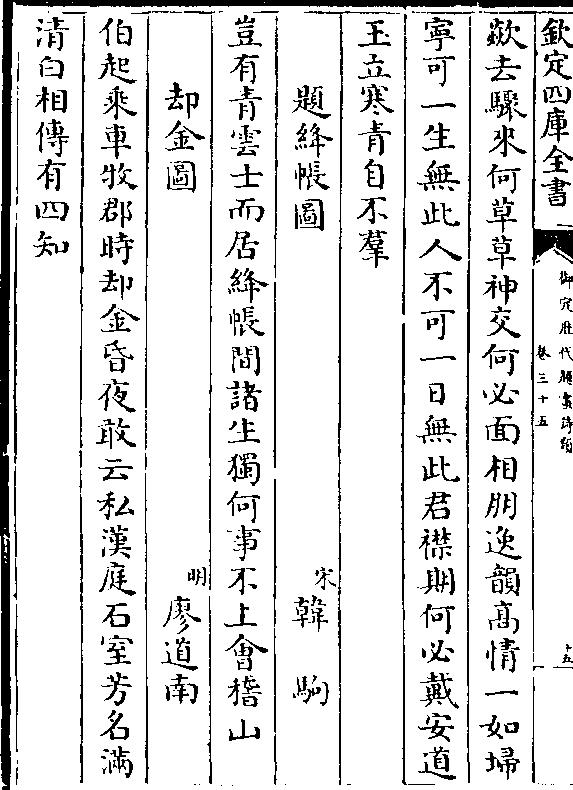 欽定四庫全書
御定歷代題畫詩類
卷三十五
十五
歘去驟來何草草神交何必面相朋逸韻高情一如埽
寧可一生無此人不可一日無此君襟期何必戴安道
玉立寒青自不羣
題絳帳圖
宋韓駒
豈有青雲士而居絳帳間諸生獨何事不上會稽山
却金圖
明廖道南
伯起乘車牧郡時却金昏夜敢云私漢庭石室芳名滿
清白相傳有四知